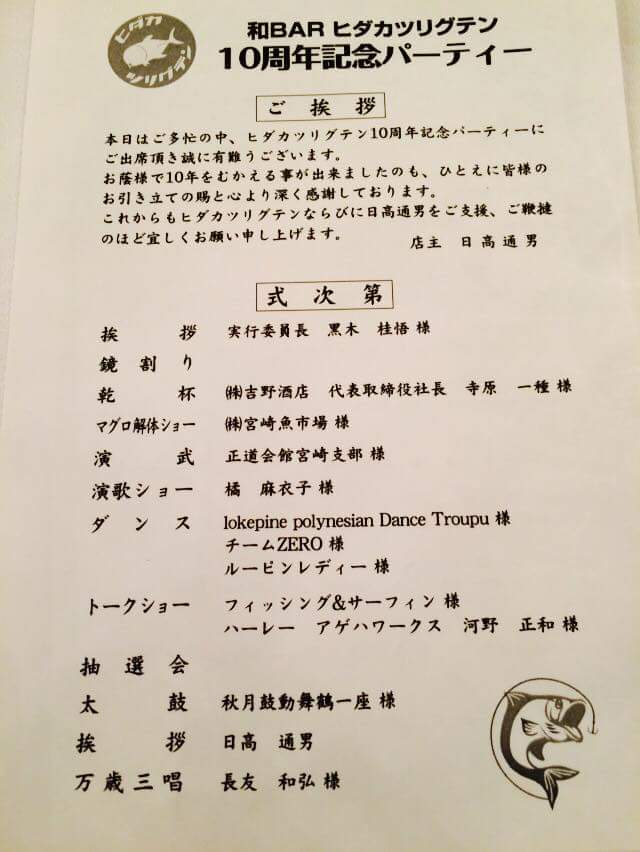 ヒダカ
ツリグテン
和BAR ヒダカツリグテン
10周年記念パーティー
ご挨拶
本日はご多忙の中、ヒダカツリグテン10周年記念パーティーに
ご出席頂き誠に有難うございます。
お蔭様で10年をむかえる事が出来ましたのも、ひとえに皆様の
お引き立ての賜と心より深く感謝しております。
これからもヒダカツリグテンならびに日高通男をご支援、ご鞭撻
のほど宜しくお願い申し上げます。
店主 日高通男
式次第
挨拶 実行委員長 黒木 桂悟 様
鏡割り
乾杯 ㈱吉野酒店 代表取締役社長 寺原 一種 様
マグロ解体ショー ㈱宮崎魚市場 様
演武 正道会館宮崎支部 様
演歌ショー 橘 麻衣子 様
ダンス lokepine polynesian Dance Troupu 様
チームZERO 様
ルービンレディー 様
トークショー フィッシング&サーフィン 様
ハーレー アゲハワークス 河野 正和 様
抽選会
太鼓 秋月鼓動舞鶴一座 様
挨拶 日高 通男
万歳三唱 長友 和弘 様